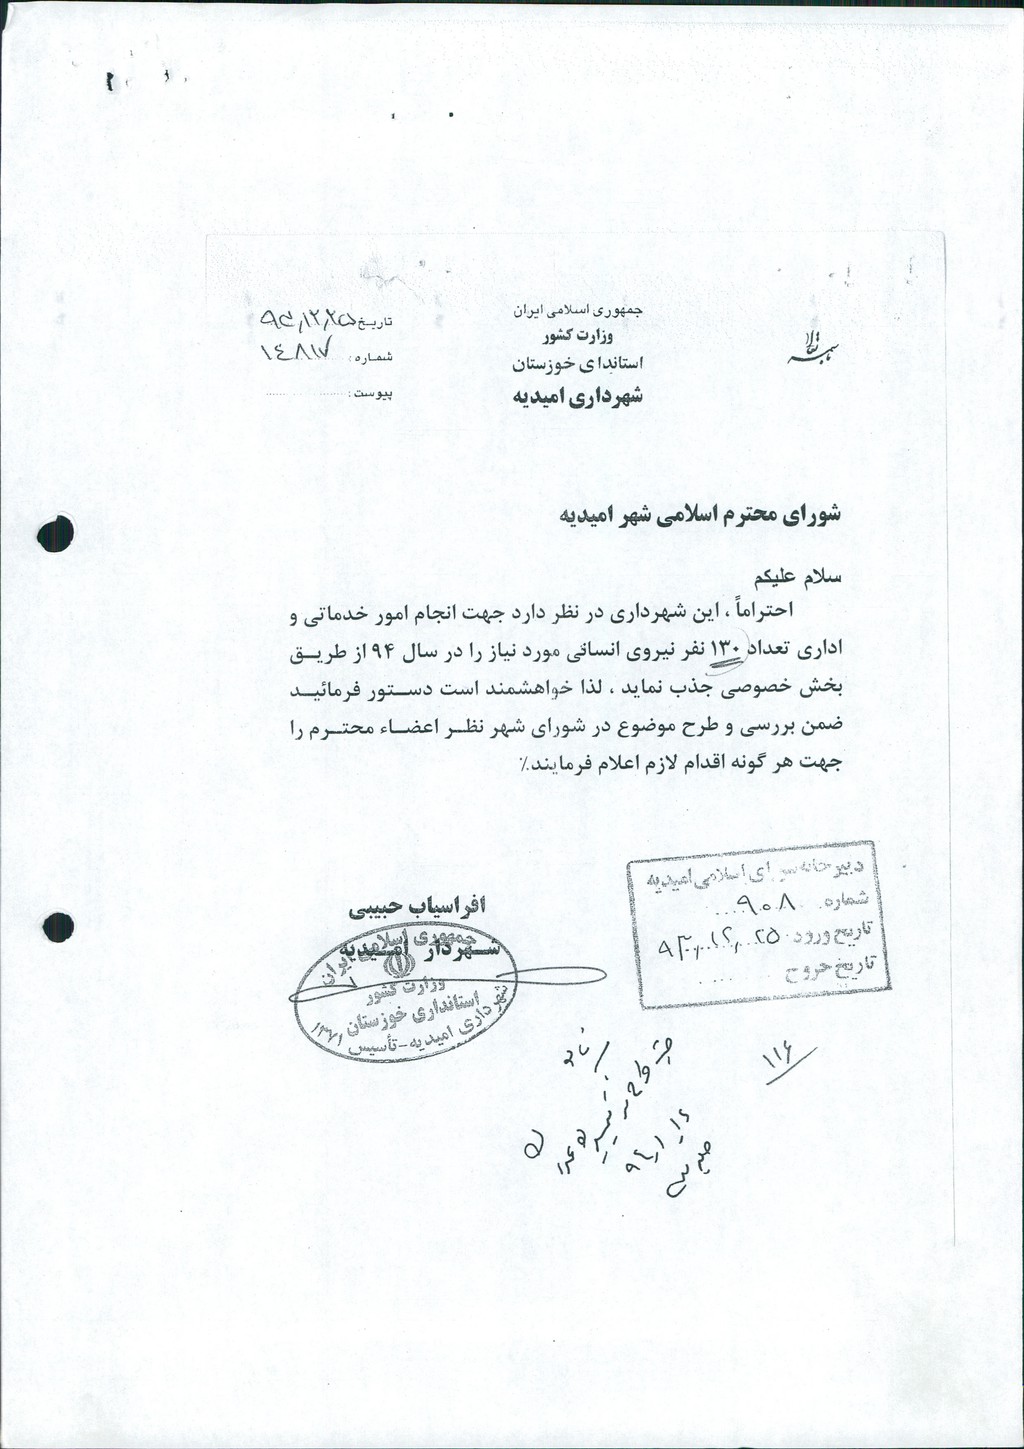 باسمه تعالی
جمهوری اسلامی ایران
وزارت کشور
استاندای خوزستان
شهرداری امیدیه
تاریخ ۹۳/۱۲/۲۵
شماره: ۱٤۸۱۷
پیوست: ....................
شورای محترم اسلامی شهر امیدیه
سلام علیکم
احتراماً ، این شهرداری در نظر دارد جهت انجام امور خدماتی و
اداری تعداد ۱۳۰ نفر نیروی انسانی مورد نیاز را در سال ۹۴ از طریق
بخش خصوصی جذب نماید ، لذا خواهشمند است دستور فرمائید
ضمن بررسی و طرح موضوع در شورای شهر نظر اعضاء محترم را
جهت هر گونه اقدام لازم اعلام فرمایند٪
افراسیاب حبیبی
شهردار امیدیه
جمهوری اسلامی ایران
وزارت کشور
استانداری خوزستان
شهرداری امیدیه-تأسیس ۱۳۷۱
دبیرخانه شورای اسلامی امیدیه
شماره ۹۰۸
تاریخ ورود ۹۳/۱۲/۲۵
تاریخ خروج
۱۱۶